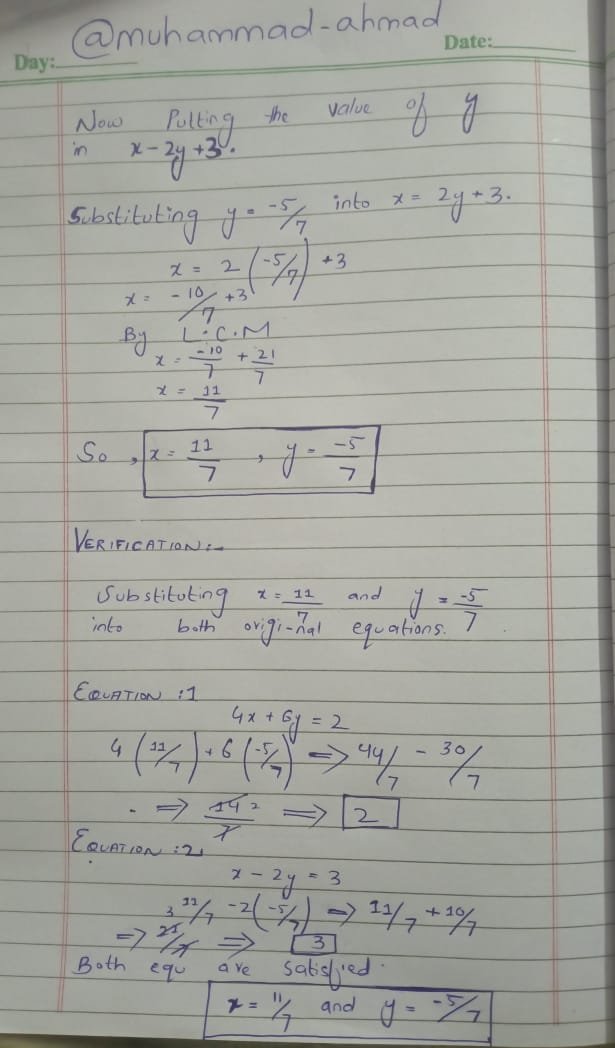 @muhammad-ahmad
Day: Date:
Now Putting the value of y
in x - 2y + 3.
Substituting y = -5/7 into x = 2y + 3.
x = 2 (-5/7) + 3
x = - 10/7 + 3
By L.C.M
x = -10/7 + 21/7
x = 11/7
So , x = 11/7 , y = -5/7
VERIFICATION:-
Substituting x = 11/7 and y = -5/7
into both origi-nal equations.
EQUATION :1
4x + 6y = 2
4 (11/7) + 6 (-5/7) => 44/7 - 30/7
=> 14/7 2 => 2
EQUATION :2
x - 2y = 3
11/7 - 2(-5/7) => 11/7 + 10/7
=> 21/7 3 => 3
Both equ are satisfied.
x = 11/7 and y = -5/7